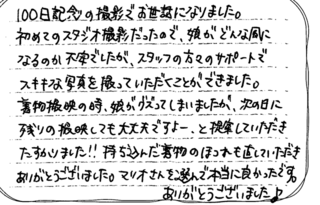 100日記念の撮影でお世話になりました。
初めてのスタジオ撮影だったので、娘がどんな風に
なるのか不安でしたが、スタッフの方々のサポートで
ステキな写真を撮っていただくことができました。
着物撮影の時、娘がぐずってしまいましたが、次の日に
残りの撮影しても大丈夫ですよー、と提案していただき
たすかりました!!持ち込んだ着物のほつれも直していただき
ありがとうございました。マリオさんを選んで本当に良かったです。
ありがとうございました♪